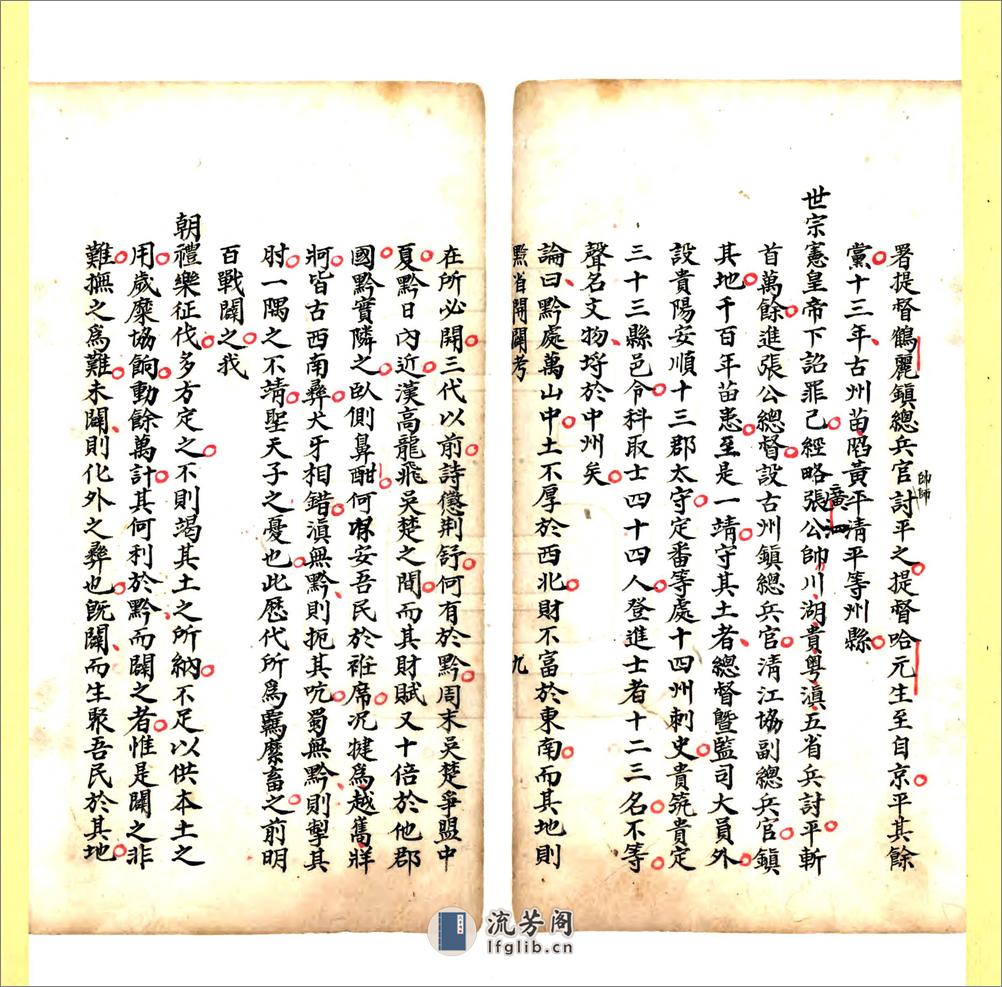 署提督鶴麗鎮總兵官討平之提督哈元生至自京平其餘
帥師
黨十三年古州苗陷黃平清平等州縣
世宗憲皇帝下詔罪己經略張公帥川湖貴粵滇五省兵討平斬
廣
首萬餘進張公總督設古州鎮總兵官清江協副總兵官鎮
其地千百年苗患至是一靖守其土者總督暨監司大員外
設貴陽安順十三郡太守定番等處十四州刺史貴筑貴定
三十三縣邑令科取士四十四人登進士者十二三名不等
聲名文物埒於中州矣
論曰黔處萬山中土不厚於西北財不富於東南而其地則
黔省開闢考
九
在所必開三代以前詩懲荊舒何有於黔周末吳楚爭盟中
夏黔日內近漢高龍飛吳楚之間而其財賦又十倍於他郡
國黔實隣之臥側鼻酣何以安吾民於袵席况犍爲越雟牂
牁皆古西南彝犬牙相錯滇無黔則扼其吭蜀無黔則掣其
肘一隅之不靖聖天子之憂也此歷代所爲羈縻畜之前明
百戰闢之我
朝禮樂征伐多方定之不則竭其土之所納不足以供本土之
用歲糜協餉動餘萬計其何利於黔而闢之者惟是闢之非
難撫之爲難未闢則化外之彝也旣闢而生聚吾民於其地
流芳阁
lfglib.cn